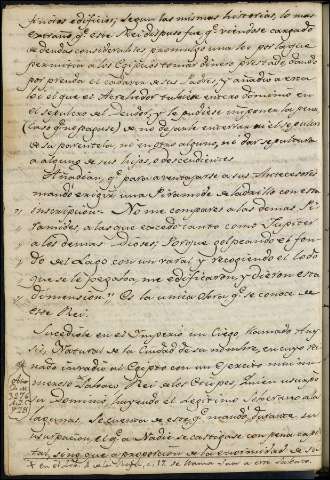 ficiosos edificios, segun las mismas historias, lo mas
extraño q.e este Rei dispuso fue q.e viendose cargado
de deudas considerables promulgó una lei por la que
permitia a los Egipcios tomar dinero prestado, dando
por prenda el cadaver de sus Padres, y añadio a esta
lei el que el Acrehedor tubiese entero dominio en
el sepulcro del Deudor, y se pudiese imponer la pena
(caso q.e no pagase) de no dejarle enterrar en el sepulcro
de su parentela, ni en otro alguno, ni dar sepultura
a alguno de sus hijos, o descendientes
Añadian, q.e para aventajarse a sus Antecesores
mandó erigir una Piramide de ladrillo con esta
inscripcion: No me compares a las demas Pi-
ramides, a las que excedo tanto como Jupiter
a los demas Dioses; porque golpeando el fon-
do del Lago con un varal y recogiendo el lodo
que se le pegaba, me edificaron, y dieron esta
dimension." Es la unica obra q.e se conoce de
este Rei.
Sucediole en el Imperio un Ciego llamado Any-
sis, Natural de la Ciudad de su nombre, en cuyo rei-
nado invadió al Egipto con un Exercito mui nu-
meroso Sabaco Rei de los Etiopes, quien usurpó
su Dominio, huyendo el legitimo Soberano a las
lagunas. Se cuenta de este q.e mandó durante su
usurpacion, el q.e a Nadie se castigase con pena capi-
tal, sino que a proporcion de la enormidad de su
3276
A.J.C.
728